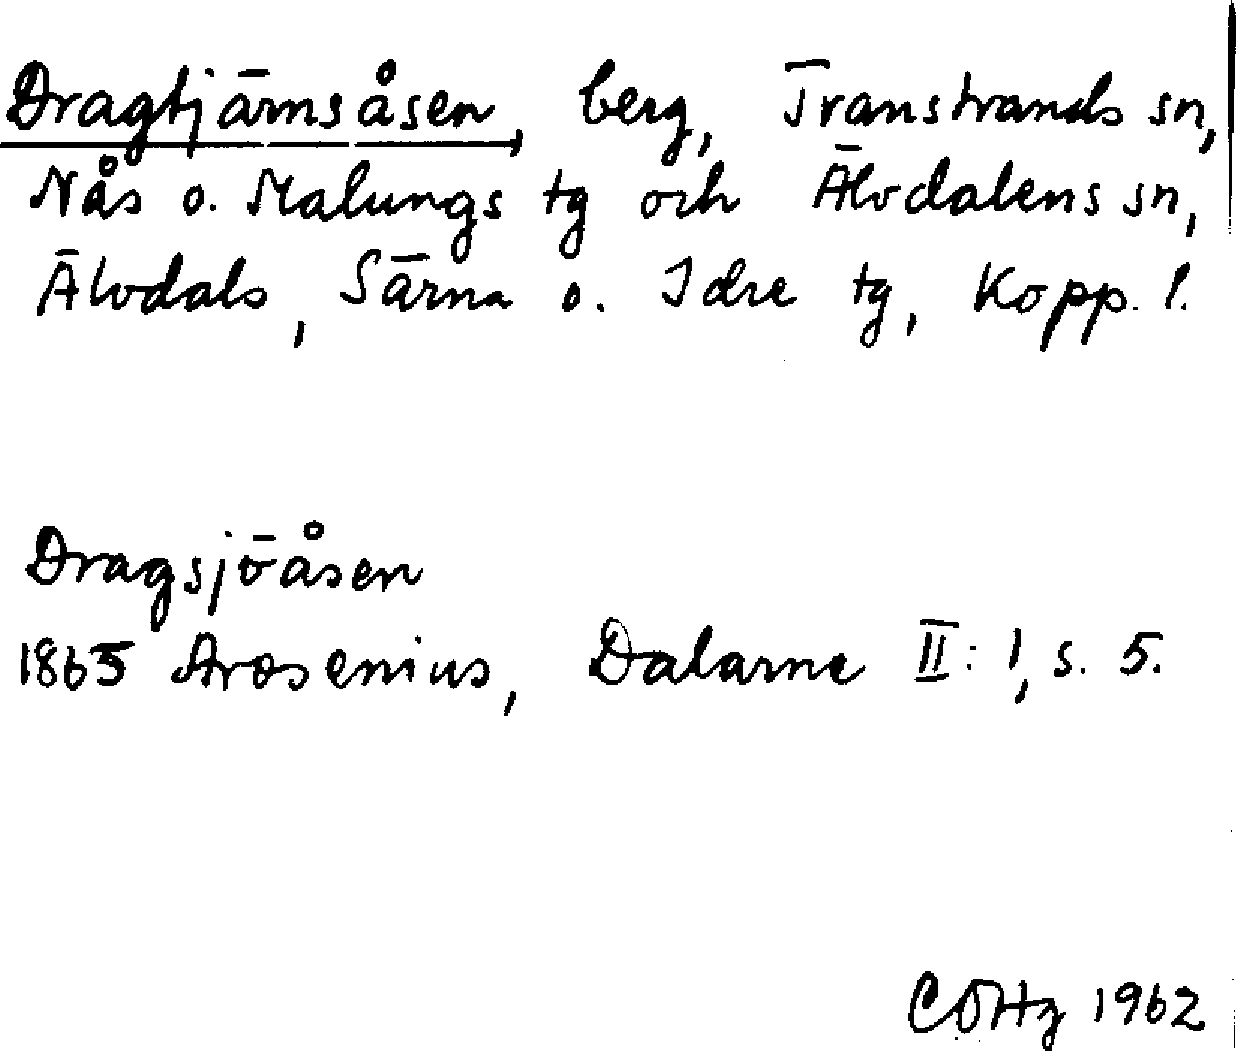 Dragtjärnsåsen, berg, Transtrands sn,
Nås o. Malungs tg och Älvdalens sn,
Älvdals, Särna o. Idre tg, Kopp. l.
Dragsjöåsen
1865 Arosenius, Dalarne II: 1, s. 5.
1962